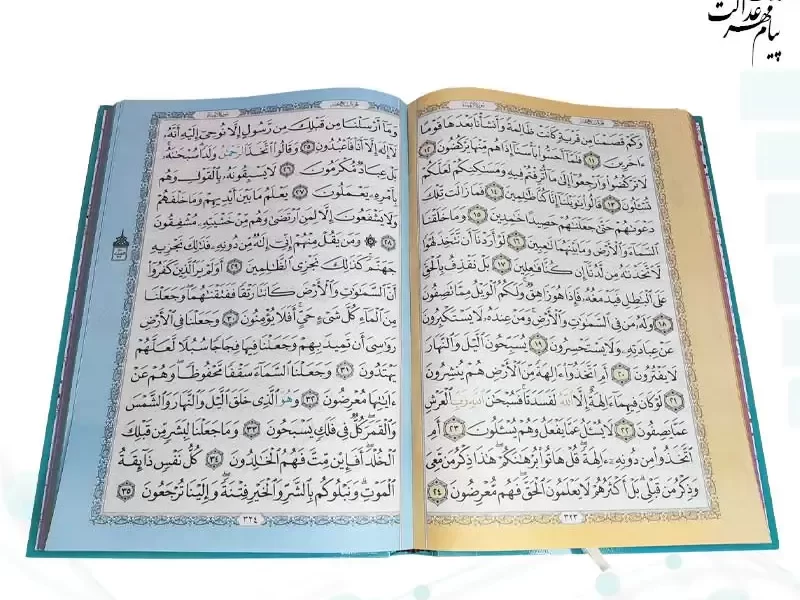 پیام مهر عدالت
وَكَمْ قَصَمْنَا مِن قَرْيَةٍ كَانَتْ ظَالِمَةً وَأَنشَأْنَا بَعْدَهَا قَوْمًا
ءَاخَرِينَ ۝١١ فَلَمَّآ أَحَسُّوا۟ بَأْسَنَآ إِذَا هُم مِّنْهَا يَرْكُضُونَ ۝١٢
لَا تَرْكُضُوا۟ وَٱرْجِعُوٓا۟ إِلَىٰ مَآ أُتْرِفْتُمْ فِيهِ وَمَسَٰكِنِكُمْ لَعَلَّكُمْ
تُسْـَٔلُونَ ۝١٣ قَالُوا۟ يَٰوَيْلَنَآ إِنَّا كُنَّا ظَٰلِمِينَ ۝١٤ فَمَا زَالَت تِّلْكَ
دَعْوَىٰهُمْ حَتَّىٰ جَعَلْنَٰهُمْ حَصِيدًا خَٰمِدِينَ ۝١٥ وَمَا خَلَقْنَا
ٱلسَّمَآءَ وَٱلْأَرْضَ وَمَا بَيْنَهُمَا لَٰعِبِينَ ۝١٦ لَوْ أَرَدْنَآ أَن نَّتَّخِذَ لَهْوًا
لَّٱتَّخَذْنَٰهُ مِن لَّدُنَّآ إِن كُنَّا فَٰعِلِينَ ۝١٧ بَلْ نَقْذِفُ بِٱلْحَقِّ
عَلَى ٱلْبَٰطِلِ فَيَدْمَغُهُۥ فَإِذَا هُوَ زَاهِقٌ ۚ وَلَكُمُ ٱلْوَيْلُ مِمَّا تَصِفُونَ
۝١٨ وَلَهُۥ مَن فِى ٱلسَّمَٰوَٰتِ وَٱلْأَرْضِ ۚ وَمَنْ عِندَهُۥ لَا يَسْتَكْبِرُونَ
عَنْ عِبَادَتِهِۦ وَلَا يَسْتَحْسِرُونَ ۝١٩ يُسَبِّحُونَ ٱلَّيْلَ وَٱلنَّهَارَ
لَا يَفْتُرُونَ ۝٢٠ أَمِ ٱتَّخَذُوٓا۟ ءَالِهَةً مِّنَ ٱلْأَرْضِ هُمْ يُنشِرُونَ
۝٢١ لَوْ كَانَ فِيهِمَآ ءَالِهَةٌ إِلَّا ٱللَّهُ لَفَسَدَتَا ۚ فَسُبْحَٰنَ ٱللَّهِ رَبِّ ٱلْعَرْشِ
عَمَّا يَصِفُونَ ۝٢٢ لَا يُسْـَٔلُ عَمَّا يَفْعَلُ وَهُمْ يُسْـَٔلُونَ ۝٢٣ أَمِ
ٱتَّخَذُوا۟ مِن دُونِهِۦٓ ءَالِهَةً ۖ قُلْ هَاتُوا۟ بُرْهَٰنَكُمْ ۖ هَٰذَا ذِكْرُ مَن مَّعِىَ
وَذِكْرُ مَن قَبْلِى ۗ بَلْ أَكْثَرُهُمْ لَا يَعْلَمُونَ ٱلْحَقَّ ۖ فَهُم مُّعْرِضُونَ ۝٢٤
٣٢٣
وَمَآ أَرْسَلْنَا مِن قَبْلِكَ مِن رَّسُولٍ إِلَّا نُوحِىٓ إِلَيْهِ أَنَّهُۥ
لَآ إِلَٰهَ إِلَّآ أَنَا۠ فَٱعْبُدُونِ ۝٢٥ وَقَالُوا۟ ٱتَّخَذَ ٱلرَّحْمَٰنُ وَلَدًا ۗ سُبْحَٰنَهُۥ ۚ
بَلْ عِبَادٌ مُّكْرَمُونَ ۝٢٦ لَا يَسْبِقُونَهُۥ بِٱلْقَوْلِ وَهُم
بِأَمْرِهِۦ يَعْمَلُونَ ۝٢٧ يَعْلَمُ مَا بَيْنَ أَيْدِيهِمْ وَمَا خَلْفَهُمْ
وَلَا يَشْفَعُونَ إِلَّا لِمَنِ ٱرْتَضَىٰ وَهُم مِّنْ خَشْيَتِهِۦ مُشْفِقُونَ
۝٢٨ ۞ وَمَن يَقُلْ مِنْهُمْ إِنِّىٓ إِلَٰهٌ مِّن دُونِهِۦ فَذَٰلِكَ نَجْزِيهِ
جَهَنَّمَ ۚ كَذَٰلِكَ نَجْزِى ٱلظَّٰلِمِينَ ۝٢٩ أَوَلَمْ يَرَ ٱلَّذِينَ كَفَرُوٓا۟
أَنَّ ٱلسَّمَٰوَٰتِ وَٱلْأَرْضَ كَانَتَا رَتْقًا فَفَتَقْنَٰهُمَا ۖ وَجَعَلْنَا
مِنَ ٱلْمَآءِ كُلَّ شَىْءٍ حَىٍّ ۖ أَفَلَا يُؤْمِنُونَ ۝٣٠ وَجَعَلْنَا فِى ٱلْأَرْضِ
رَوَٰسِىَ أَن تَمِيدَ بِهِمْ وَجَعَلْنَا فِيهَا فِجَاجًا سُبُلًا لَّعَلَّهُمْ
يَهْتَدُونَ ۝٣١ وَجَعَلْنَا ٱلسَّمَآءَ سَقْفًا مَّحْفُوظًا ۖ وَهُمْ عَنْ
ءَايَٰتِهَا مُعْرِضُونَ ۝٣٢ وَهُوَ ٱلَّذِى خَلَقَ ٱلَّيْلَ وَٱلنَّهَارَ وَٱلشَّمْسَ
وَٱلْقَمَرَ ۖ كُلٌّ فِى فَلَكٍ يَسْبَحُونَ ۝٣٣ وَمَا جَعَلْنَا لِبَشَرٍ مِّن قَبْلِكَ
ٱلْخُلْدَ ۖ أَفَإِي۟ن مِّتَّ فَهُمُ ٱلْخَٰلِدُونَ ۝٣٤ كُلُّ نَفْسٍ ذَآئِقَةُ
ٱلْمَوْتِ ۗ وَنَبْلُوكُم بِٱلشَّرِّ وَٱلْخَيْرِ فِتْنَةً ۖ وَإِلَيْنَا تُرْجَعُونَ ۝٣٥
٣٢٤